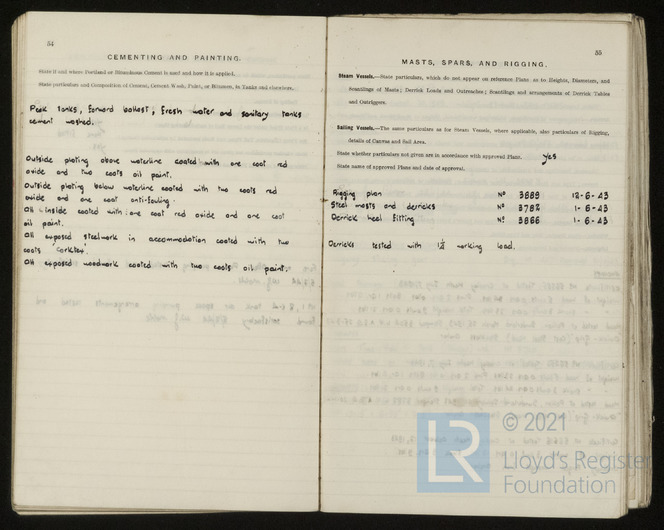 54
CEMENTING AND PAINTING.
State if and where Portland or Bituminous Cement is used and how it is applied.
State particulars and Composition of Cement, Cement Wash, Paint, or Bitumen, in Tanks and elsewhere.
Peak tanks, forward ballast, fresh water and sanitary tanks
cement washed.
Outside plating above waterline coated with one coat red
oxide and two coats oil paint.
Outside plating below waterline coated with two coats red
oxide and one coat anti-fouling.
All inside coated with one coat red oxide and one coat
oil paint.
All exposed steelwork in accommodation coated with two
coats "Corktex".
All exposed woodwork coated with two coats oil paint.
55
MASTS, SPARS, AND RIGGING.
Steam Vessels.—State particulars, which do not appear on reference Plans as to Heights, Diameters, and
Scantlings of Masts; Derrick Loads and Outreaches; Scantlings and arrangements of Derrick Tables
and Outriggers.
Sailing Vessels.—The same particulars as for Steam Vessels, where applicable, also particulars of Rigging,
details of Canvas and Sail Area.
State whether particulars not given are in accordance with approved Plans. yes
State name of approved Plans and date of approval.
Rigging plan Nº 3889 12-6-43
Steel masts and derricks Nº 3782 1-6-43
Derrick heel fitting Nº 3866 1-6-43
Derricks tested with working load.
© 2021
LR
Lloyd's Register
Foundation